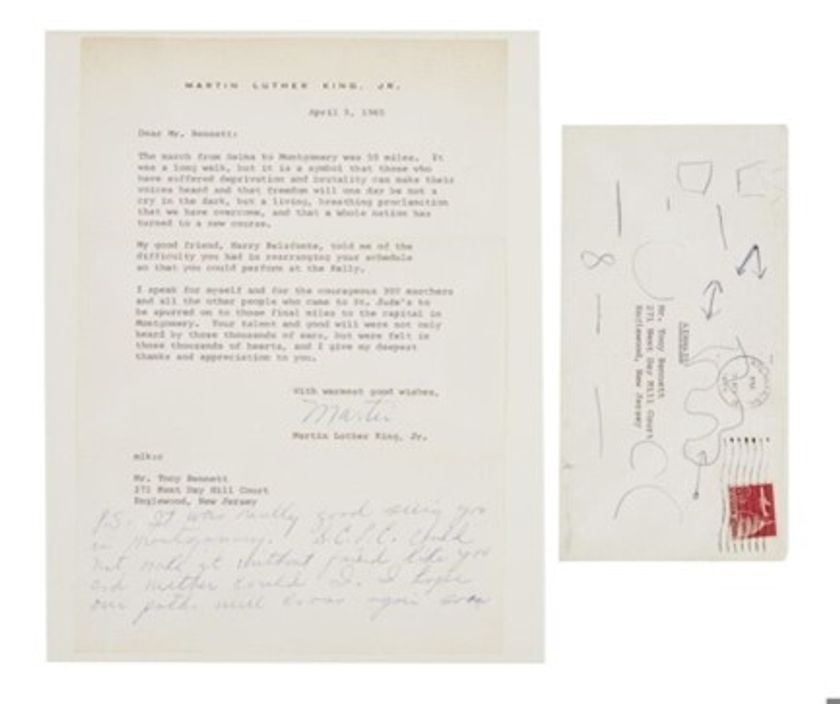 MARTIN LUTHER KING, JR.
April 5, 1965
Dear Mr. Bennett:
The march from Selma to Montgomery was 50 miles. It
was a long walk, but it is a symbol that those who
have suffered deprivation and brutality can make their
voices heard and that freedom will one day be not a
cry in the dark, but a living, breathing proclamation
that we have overcome, and that a whole nation has
turned to a new course.
My good friend, Harry Belafonte, told me of the
difficulty you had in rearranging your schedule
so that you could perform at the Rally.
I speak for myself and for the courageous 300 marchers
and all the other people who came to St. Jude's to
be spurred on to those final miles to the capital in
Montgomery. Your talent and good will were not only
heard by those thousands of ears, but were felt in
those thousands of hearts, and I give my deepest
thanks and appreciation to you.
With warmest good wishes,
Martin
Martin Luther King, Jr.
mlk:c
Mr. Tony Bennett
271 West Day Hill Court
Englewood, New Jersey
P.S. It was really good seeing you
in Montgomery. S.C.L.C. could
not make it without friend like you
and neither could I. I hope
our paths will cross again soon
8
Mr. Tony Bennett
271 West Day Hill Court
Englewood, New Jersey